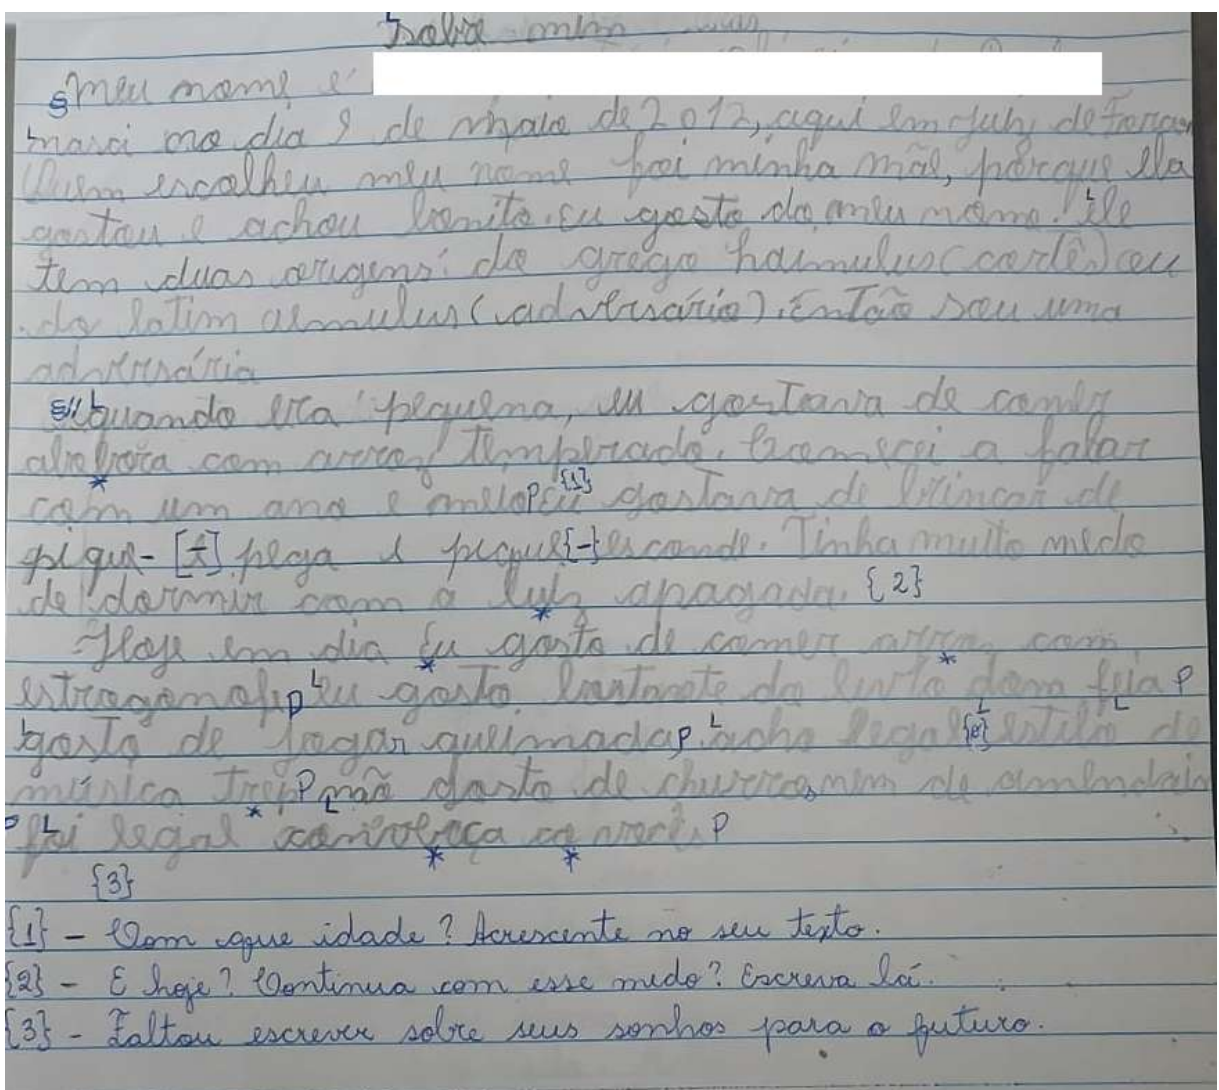 Sobre mim
Meu nome é
nasci no dia 9 de maio de 2012, aqui em Juiz de Fora
Quem escolheu meu nome foi minha mãe, porque ela
gostou e achou bonito. eu gosto do meu nome. Ele
tem duas origens: do grego haimulus (cortês) ou
do latim aemulus (adversário). Então sou uma
adversária
quando era pequena, eu gostava de comer
com arroz temperado. Comecei a falar
com um ano e meio P eu {1} gostava de brincar de
pique- [ ] pega e pique{-}esconde. Tinha muito medo
de dormir com a luh apagada. {2}
Hoje em dia Eu gosto de comer arroz com
estrogonofi P eu gosto bastante da Turma P
gosto de jogar queimada P. acho legal {o} estilo de
música Trep P não gosto de churros, nem de amendoim
P foi legal converça co você. P
{3}
{1} - Com que idade? Acrescente no seu texto.
{2} - E hoje? Continua com esse medo? Escreva lá.
{3} - Faltou escrever sobre seus sonhos para o futuro.